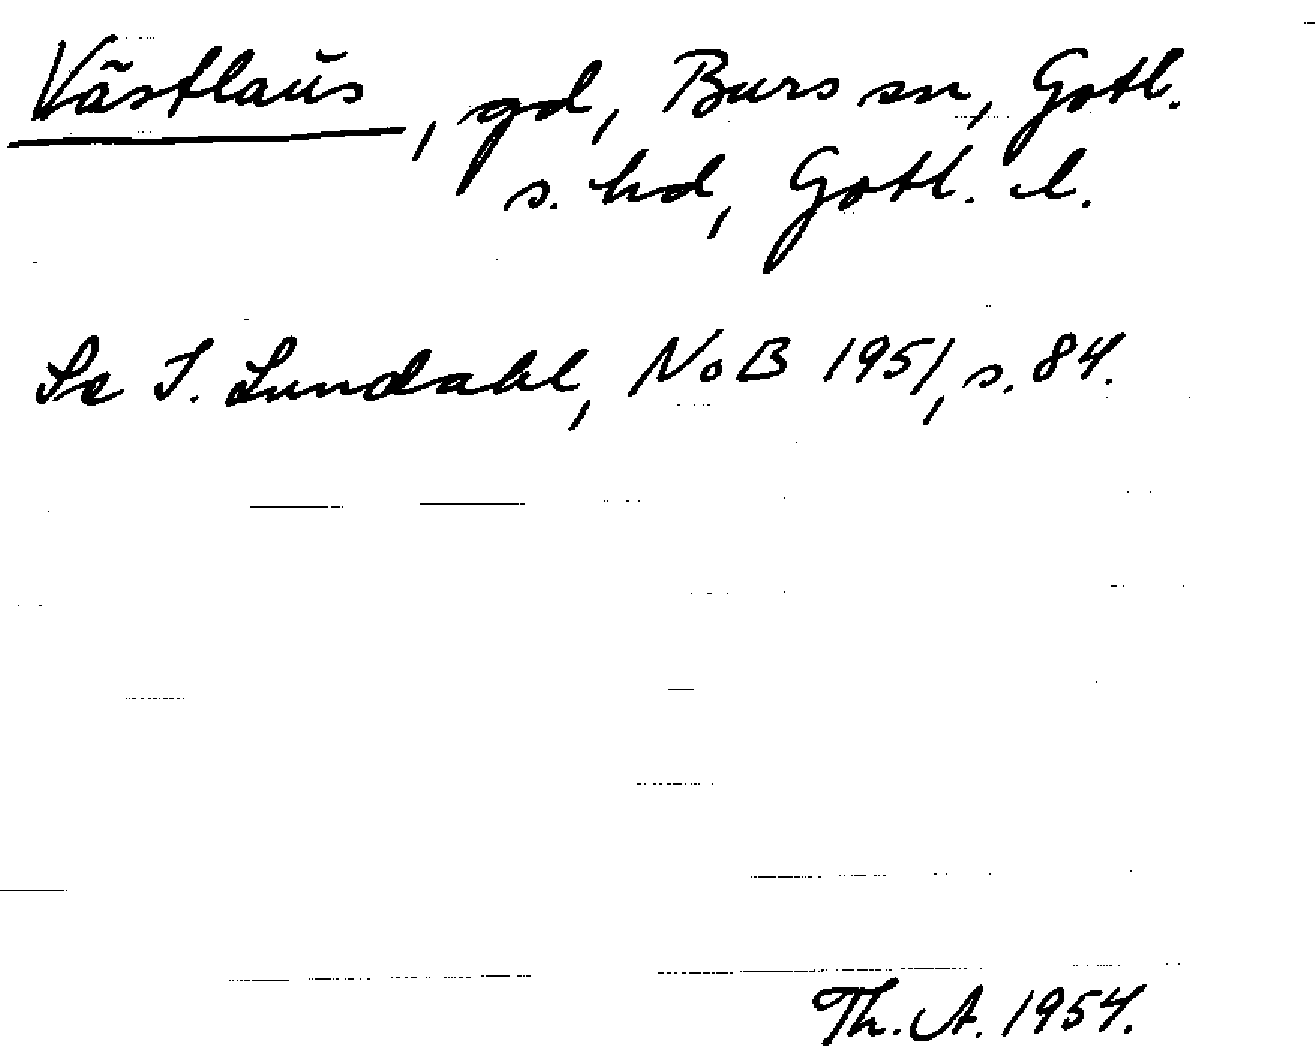 Västlaus, gd, Burs sn, Gotl.
s. hd, Gotl. l.
Se I. Lundahl, NoB 1951, s. 84.
Th. A. 1954.